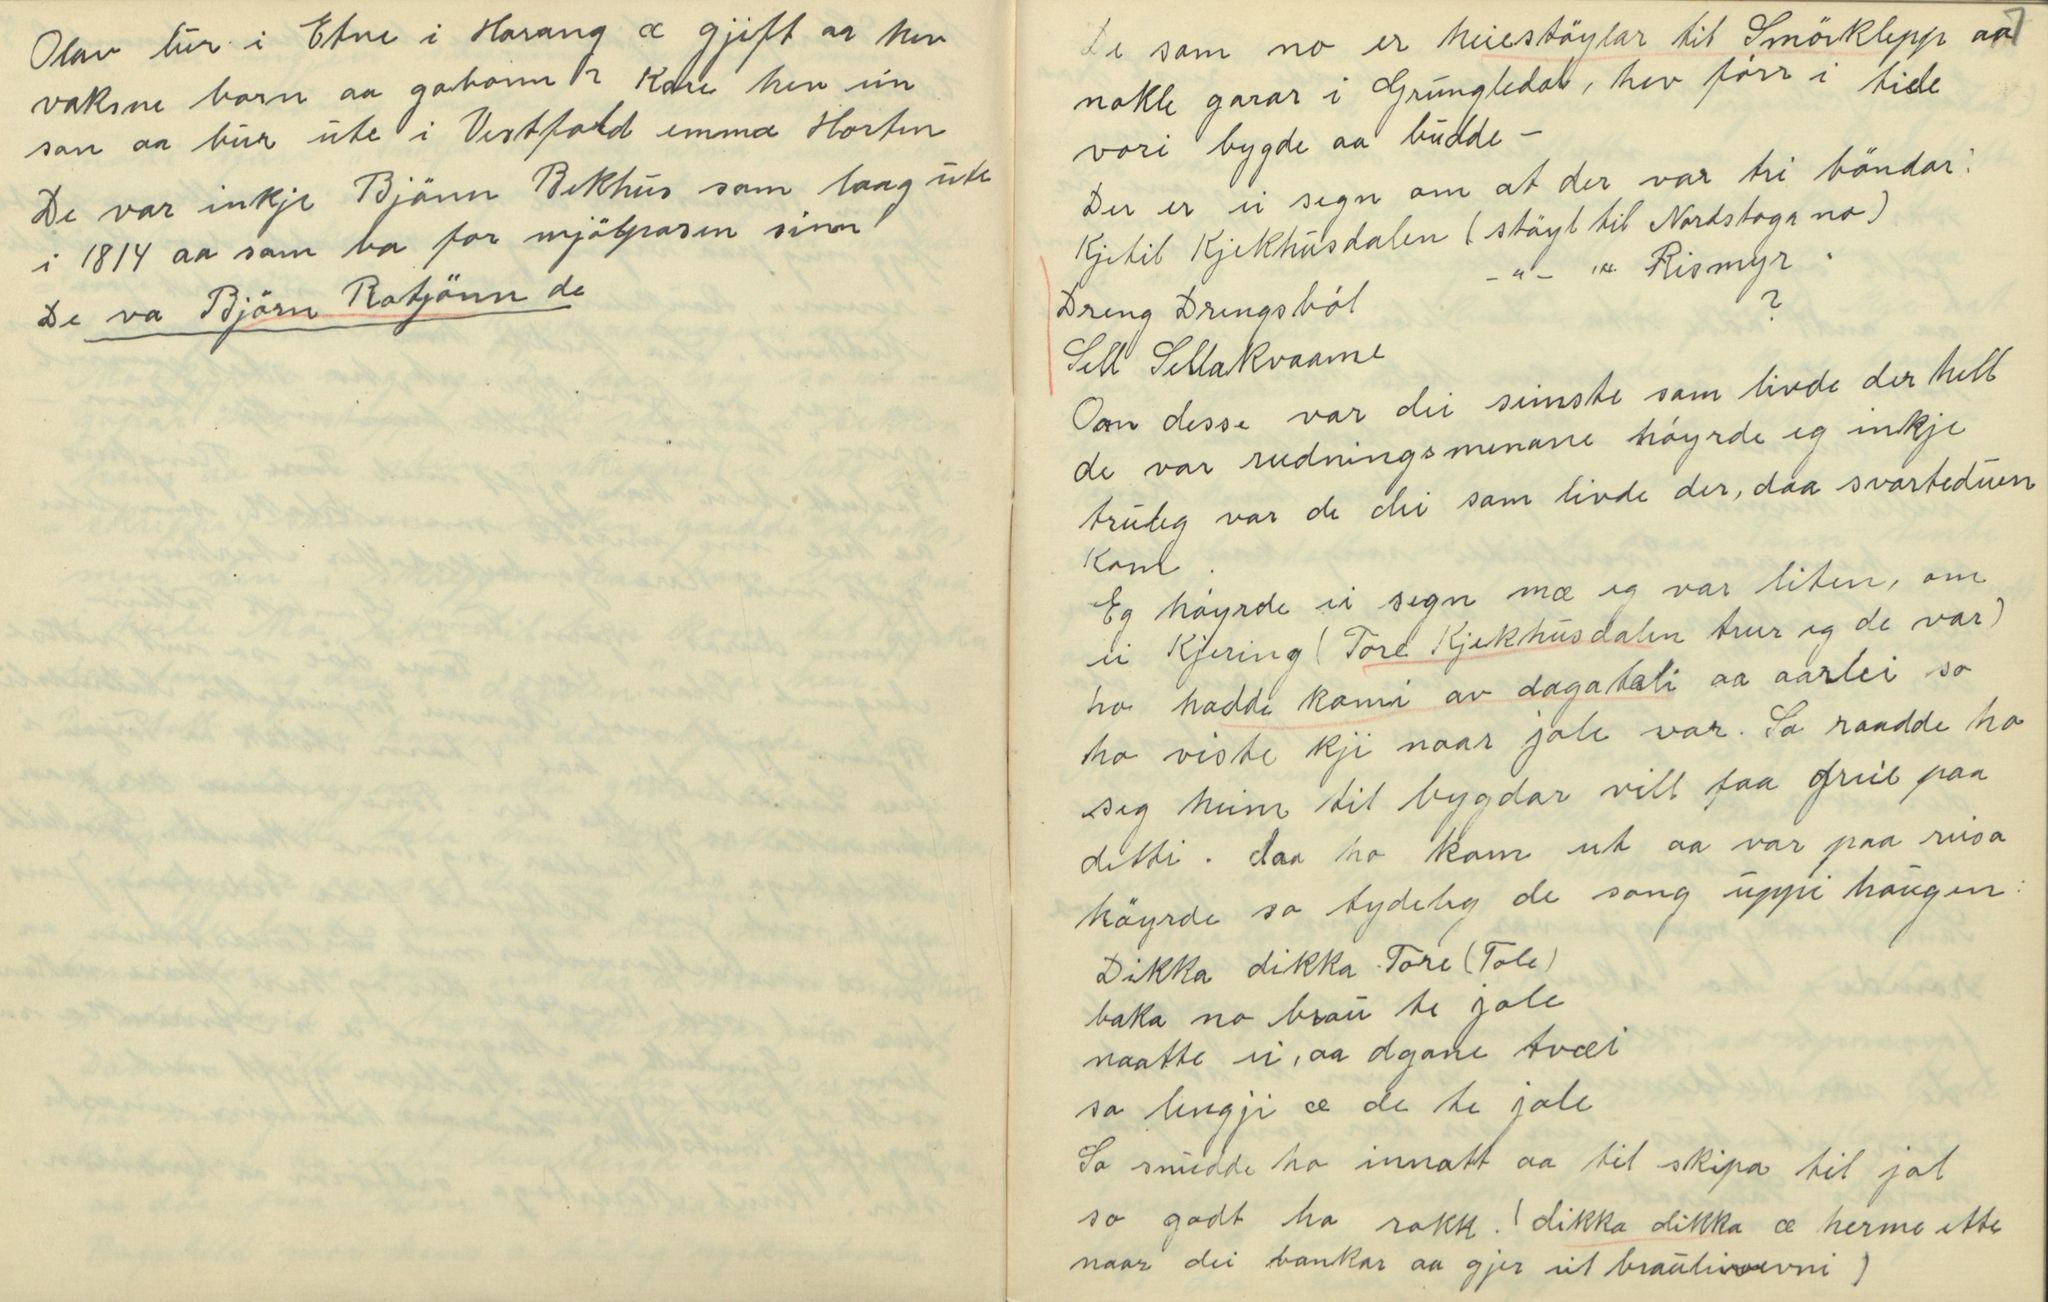 Olav bur i Etne i Horang æ gjift aa hev
vaksne born aa gobonn? Kare hev ein
son aa bur ute i Vestfold emmæ Horten
De var inkje Bjönn Bekhus som laag ute
i 1814 aa som ba for mjölposen sinn
De va Björn Rotjönn de
De som no er heiestöylar til Smörklepp aa
nokle garar i Grungledal, hev förr i tide
vori bygde aa budde –
Der er ei segn om at der var tri böndar:
Kjetil Kjekhusdalen (stöyl til Nordstoga no)
Dreng Drengsböl –"– " Rismyr.
Sell Sellakvaame ?
Om desse var dei seinste som livde der hell
de var rudningsmenane höyrde eg inkje
truleg var de dei som livde der, daa svartedauen
kom.
Eg höyrde ei segn mæ eg var liten, om
ei Kjering (Tore Kjekhusdalen trur eg de var)
ho hadde komi av dagatali aa aarlei so
ho viste kji naar jole var. So raadde ho
seg heim til bygdar vill faa greie paa
detti. daa ho kom ut aa var paa reisa
höyrde so tydeleg de song uppi haugen:
Dikka dikka Tore (Tole)
baka no brau te jole
naatte ei, aa dgane tvæi
so lengji æ de te jole
So snudde ho innatt aa til skipa til jol
so godt ho rokk. (dikka dikka æ herme ette
naar dei bankar aa gjer ut brauleivevni)